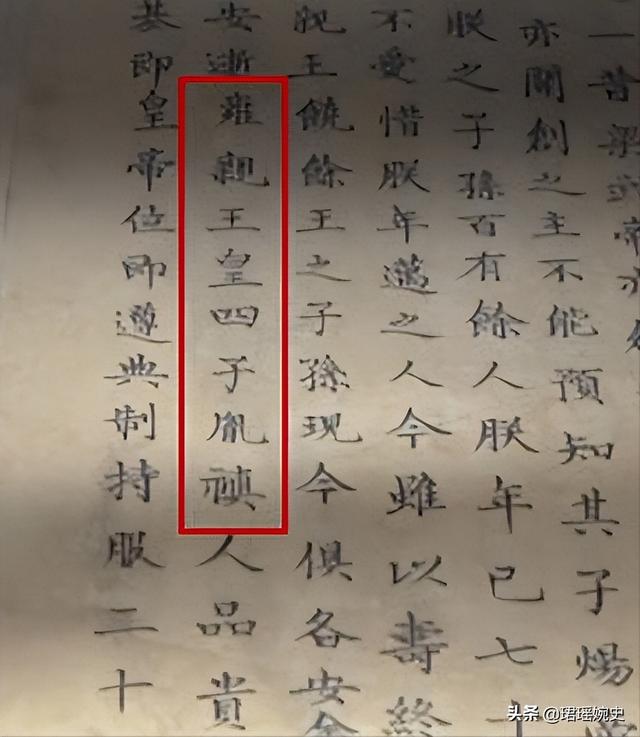 一昔梁武帝亦
亦開創之主不能預知其子煬
朕之子孫百有餘人朕年已七十
不愛惜朕年邁之人今雖以壽終
親王饒餘王之子孫現今俱各安全
安逝雍親王皇四子胤禛人品貴
基即皇帝位即遵典制持服二十
头条 @珺瑶婉史